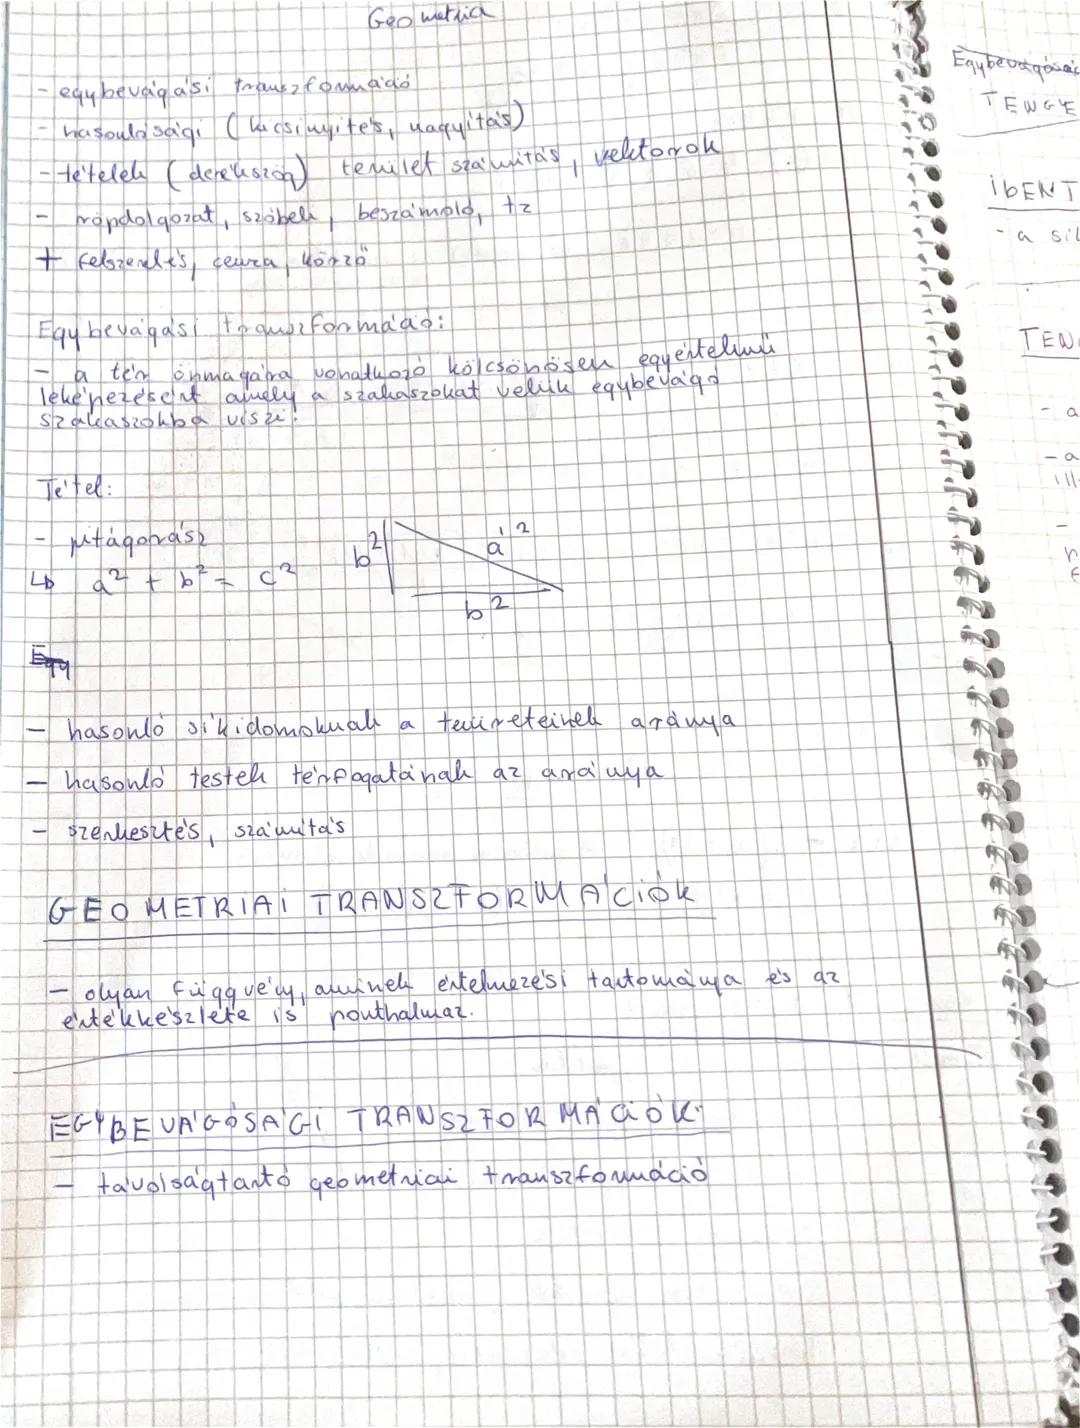 Geometria
- egybevágási transzformáció
- hasonlósági (kicsinyítés, nagyítás)
- tételek (derékszög) terület számítás, vektorok
- röpdolgozat, szóbeli, beszámoló, tz
+ felszerelés, ceruza, körző
Egybevágási transzformáció:
- a tér önmagára vonatkozó kölcsönösen egyértelmű
leképezésént amely a szakaszokat velük egybevágó
szakaszokba viszi!
Tétel:
- pitágorász
↳ a² + b² = c²
b²
a²
b²
Egy
- hasonló síkidomoknak a területeinek aránya
- hasonló testek térfogatának az aránya
- szerkesztés, számítás
GEOMETRIAI TRANSZFORMÁCIÓK
- olyan függvény, aminek értelmezési tartománya és az
értékkészlete is ponthalmaz.
EGYBEVÁGÓSÁGI TRANSZFORMÁCIÓK:
- távolságtartó geometriai transzformáció
TENGE
IDENT
- a sí
TEN
- a
- a